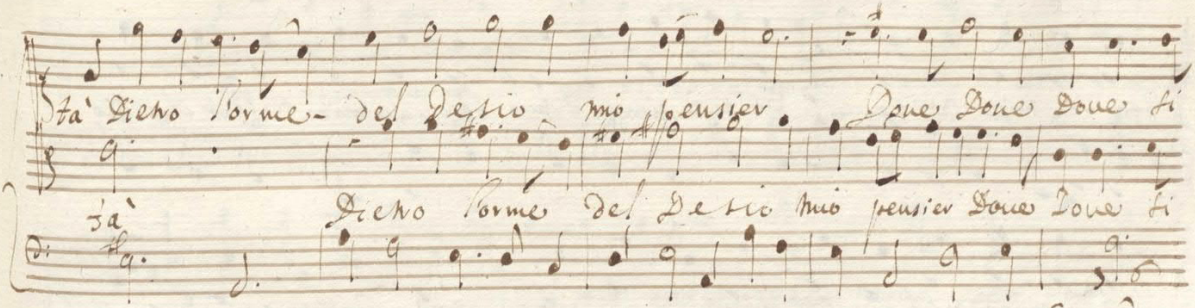 tà Dietro l'orme - del Desio mio pensier Doue Doue Doue ti
tà Dietro l'orme del Desio mio pensier Doue Doue ti